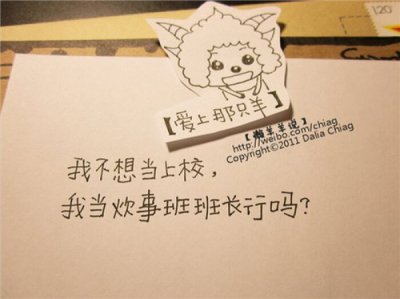 120
【爱上那只羊】
【懒羊羊说】
http://weibo.com/chiag
Copyright©2011 Dalia Chiag
我不想当上校，
我当炊事班班长行吗？